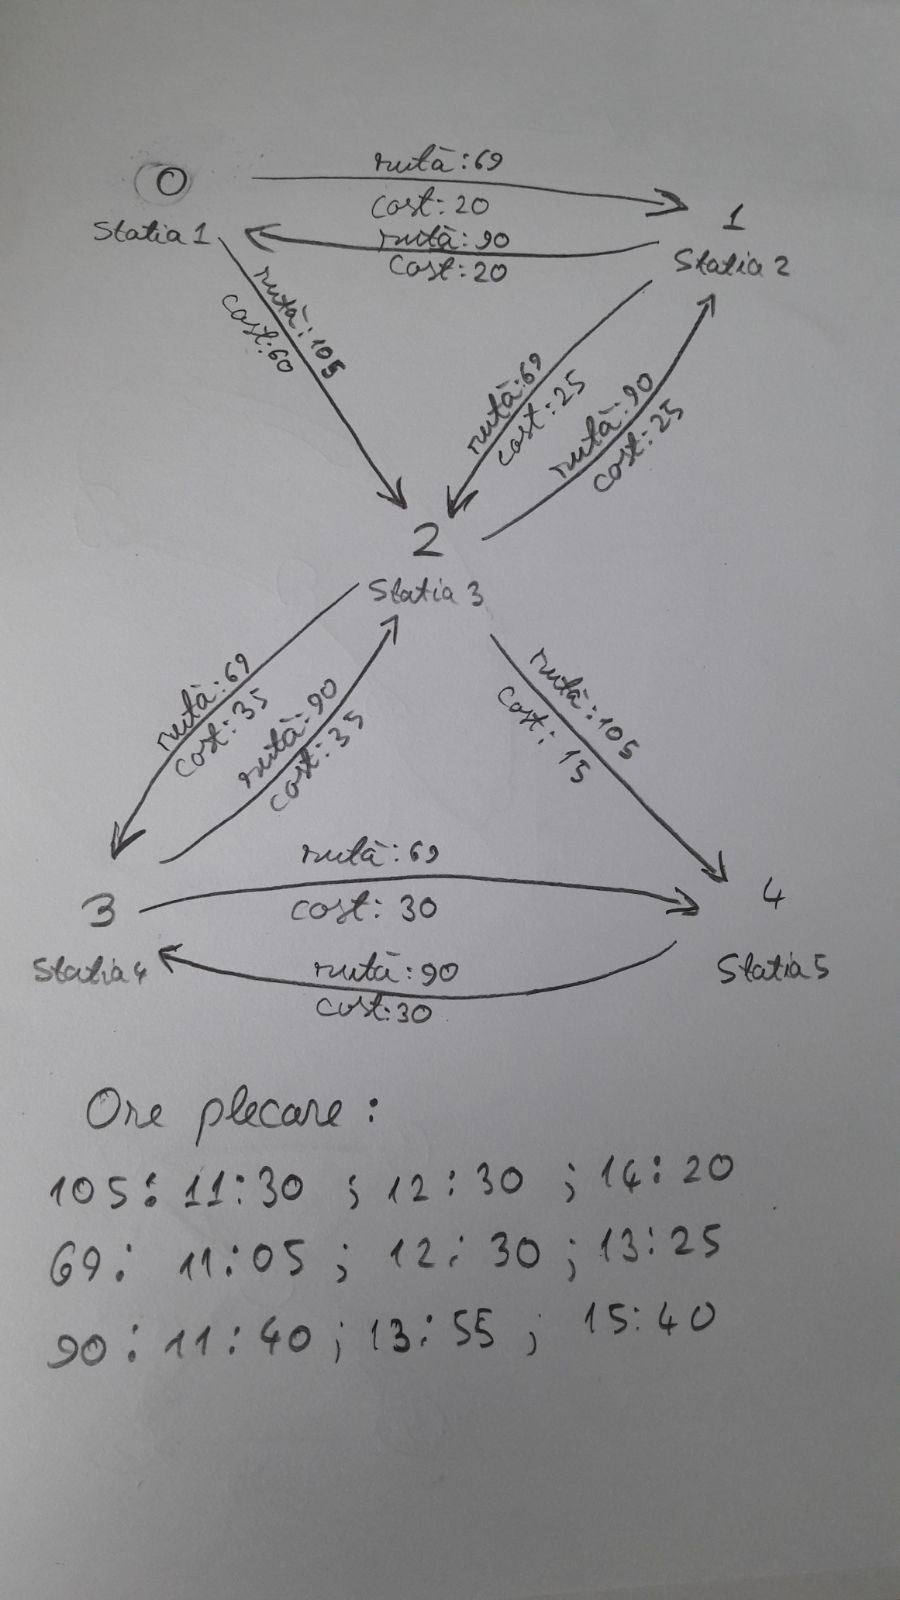 0
Statia 1
rută: 69
cost: 20
1
Statia 2
rută: 90
cost: 20
rută: 105
cost: 60
rută: 69
cost: 25
rută: 90
cost: 25
2
Statia 3
rută: 69
cost: 35
rută: 90
cost: 35
rută: 105
cost: 15
3
Statia 4
rută: 69
cost: 30
4
Statia 5
rută: 90
cost: 30
Ore plecare:
105: 11:30 ; 12:30 ; 14:20
69: 11:05 ; 12:30 ; 13:25
90: 11:40 ; 13:55 ; 15:40